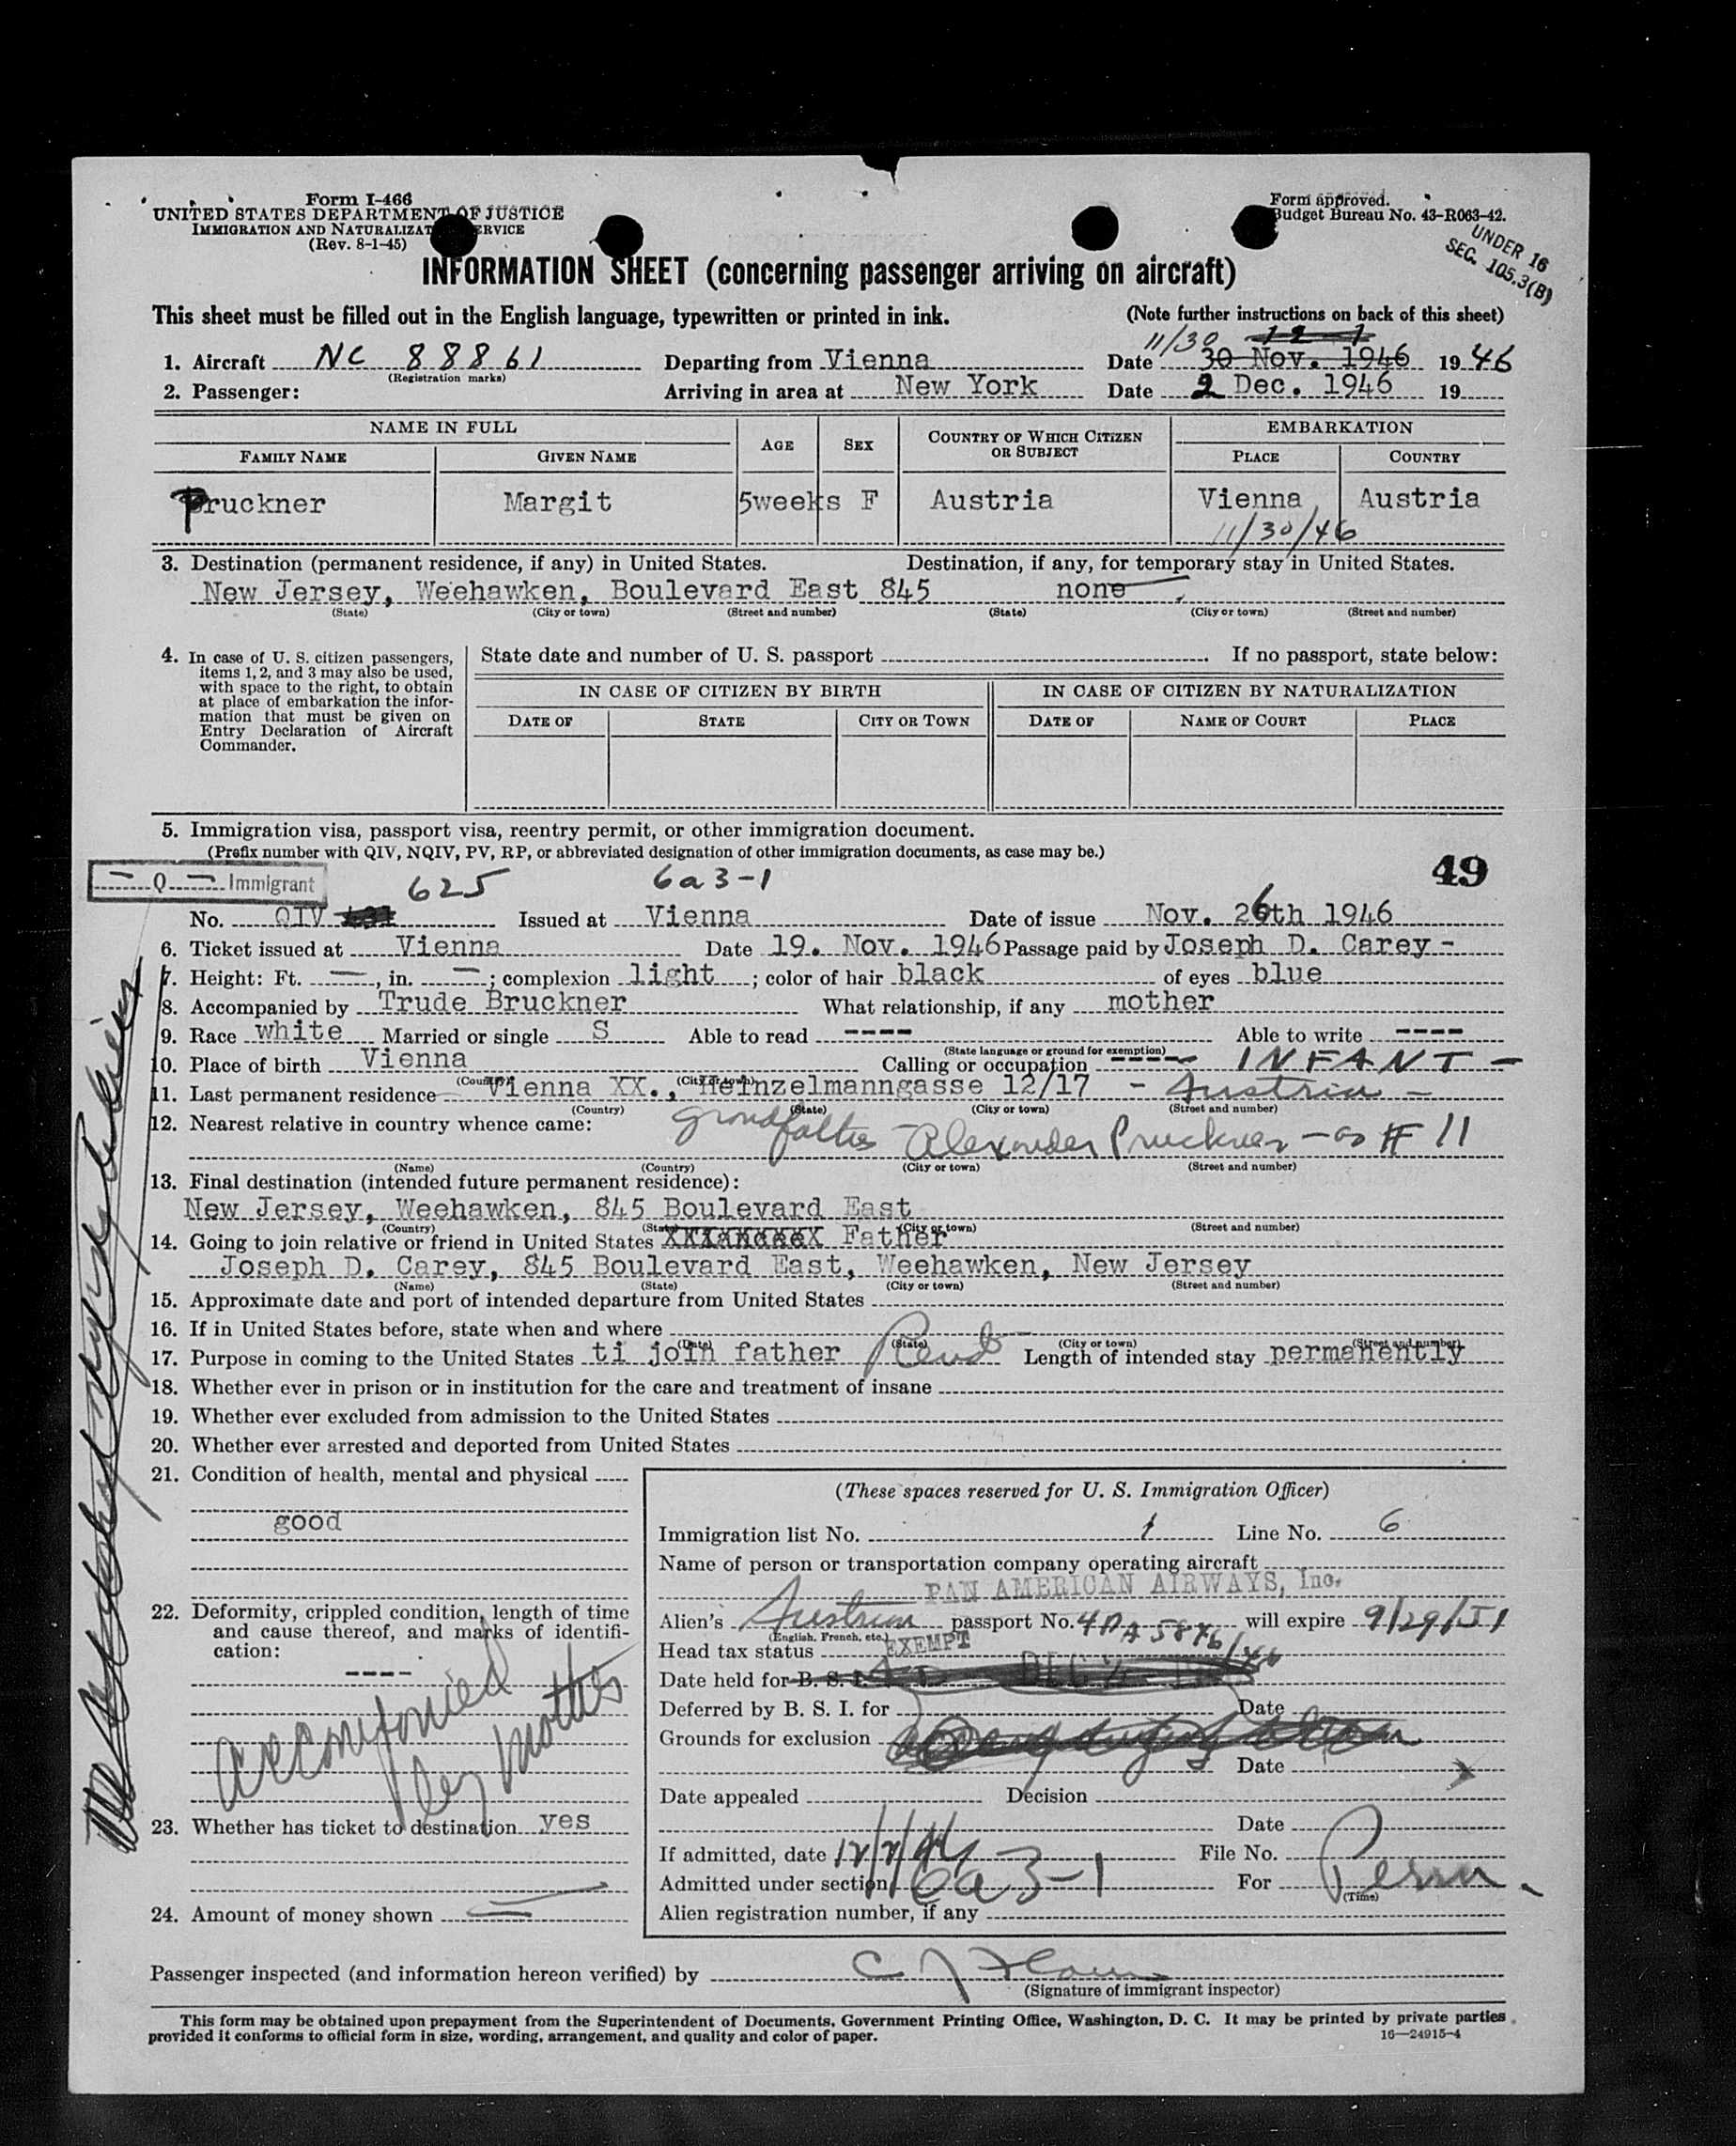 Form I-466
UNITED STATES DEPARTMENT OF JUSTICE
IMMIGRATION AND NATURALIZAT ERVICE
(Rev. 8-1-45)
Form approved.
Budget Bureau No. 43-R063-42.
UNDER 16
SEC. 105.3(B)
INFORMATION SHEET (concerning passenger arriving on aircraft)
This sheet must be filled out in the English language, typewritten or printed in ink. (Note further instructions on back of this sheet)
11/30 12-1
1. Aircraft NC 88861 Departing from Vienna Date 30 Nov. 1946 1946
(Registration marks)
2. Passenger: Arriving in area at New York Date 2 Dec. 1946 19
NAME IN FULL AGE SEX COUNTRY OF WHICH CITIZEN OR SUBJECT EMBARKATION
FAMILY NAME GIVEN NAME PLACE COUNTRY
Pruckner Margit 5weeks F Austria Vienna Austria
11/30/46
3. Destination (permanent residence, if any) in United States. Destination, if any, for temporary stay in United States.
New Jersey, Weehawken, Boulevard East 845 none
(State) (City or town) (Street and number) (State) (City or town) (Street and number)
4. In case of U. S. citizen passengers, items 1, 2, and 3 may also be used, with space to the right, to obtain at place of embarkation the information that must be given on Entry Declaration of Aircraft Commander.
State date and number of U. S. passport . If no passport, state below:
IN CASE OF CITIZEN BY BIRTH IN CASE OF CITIZEN BY NATURALIZATION
DATE OF STATE CITY OR TOWN DATE OF NAME OF COURT PLACE
5. Immigration visa, passport visa, reentry permit, or other immigration document.
(Prefix number with QIV, NQIV, PV, RP, or abbreviated designation of other immigration documents, as case may be.)
49
Q Immigrant 625 6a3-1
No. QIV Issued at Vienna Date of issue Nov. 26th 1946
6. Ticket issued at Vienna Date 19. Nov. 1946 Passage paid by Joseph D. Carey -
7. Height: Ft. —, in. —; complexion light; color of hair black of eyes blue
8. Accompanied by Trude Bruckner What relationship, if any mother
9. Race white Married or single S Able to read ---- Able to write ----
(State language or ground for exemption)
10. Place of birth Vienna Calling or occupation ---- INFANT -
(Country) (City or town)
11. Last permanent residence Vienna XX., Heinzelmanngasse 12/17 - Austria -
(Country) (State) (City or town) (Street and number)
12. Nearest relative in country whence came: grandfather Alexander Pruckner - as # 11
(Name) (Country) (City or town) (Street and number)
13. Final destination (intended future permanent residence):
New Jersey, Weehawken, 845 Boulevard East
(Country) (State) (City or town) (Street and number)
14. Going to join relative or friend in United States Father
Joseph D. Carey, 845 Boulevard East, Weehawken, New Jersey
(Name) (State) (City or town) (Street and number)
15. Approximate date and port of intended departure from United States
16. If in United States before, state when and where
(Date) (State) (City or town) (Street and number)
17. Purpose in coming to the United States ti join father Length of intended stay permanently
18. Whether ever in prison or in institution for the care and treatment of insane
19. Whether ever excluded from admission to the United States
20. Whether ever arrested and deported from United States
21. Condition of health, mental and physical
good
22. Deformity, crippled condition, length of time and cause thereof, and marks of identification:
----
accompanied by mother
23. Whether has ticket to destination yes
24. Amount of money shown
(These spaces reserved for U. S. Immigration Officer)
Immigration list No. 1 Line No. 6
Name of person or transportation company operating aircraft
PAN AMERICAN AIRWAYS, Inc.
Alien's Austrian passport No. will expire 9/29/51
(English, French, etc.)
Head tax status EXEMPT
Date held for B. S. I.
Deferred by B. S. I. for Date
Grounds for exclusion
Date
Date appealed Decision
Date
If admitted, date 12/2/46 File No.
Admitted under section 6a3-1 For Perm.
(Time)
Alien registration number, if any
Passenger inspected (and information hereon verified) by
(Signature of immigrant inspector)
This form may be obtained upon prepayment from the Superintendent of Documents, Government Printing Office, Washington, D. C. It may be printed by private parties
provided it conforms to official form in size, wording, arrangement, and quality and color of paper. 16—24915-4